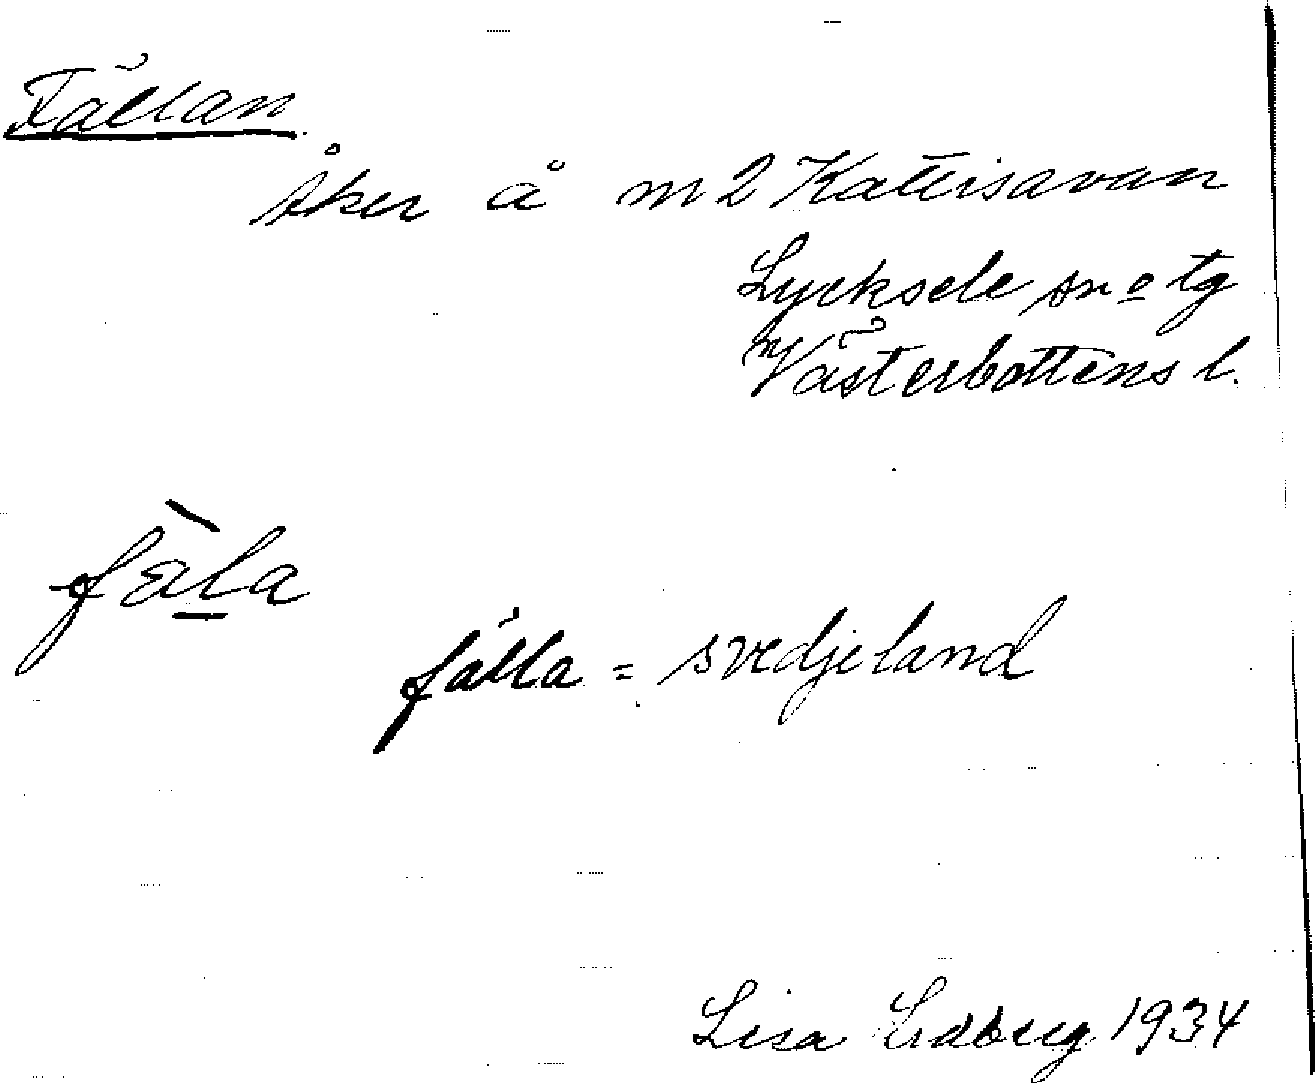 Fällan
Åker å nr 2 Katteisavan
Lycksele sn o tg
Västerbottens l.
fäla
fälla = svedjeland
Lisa Lidberg 1934